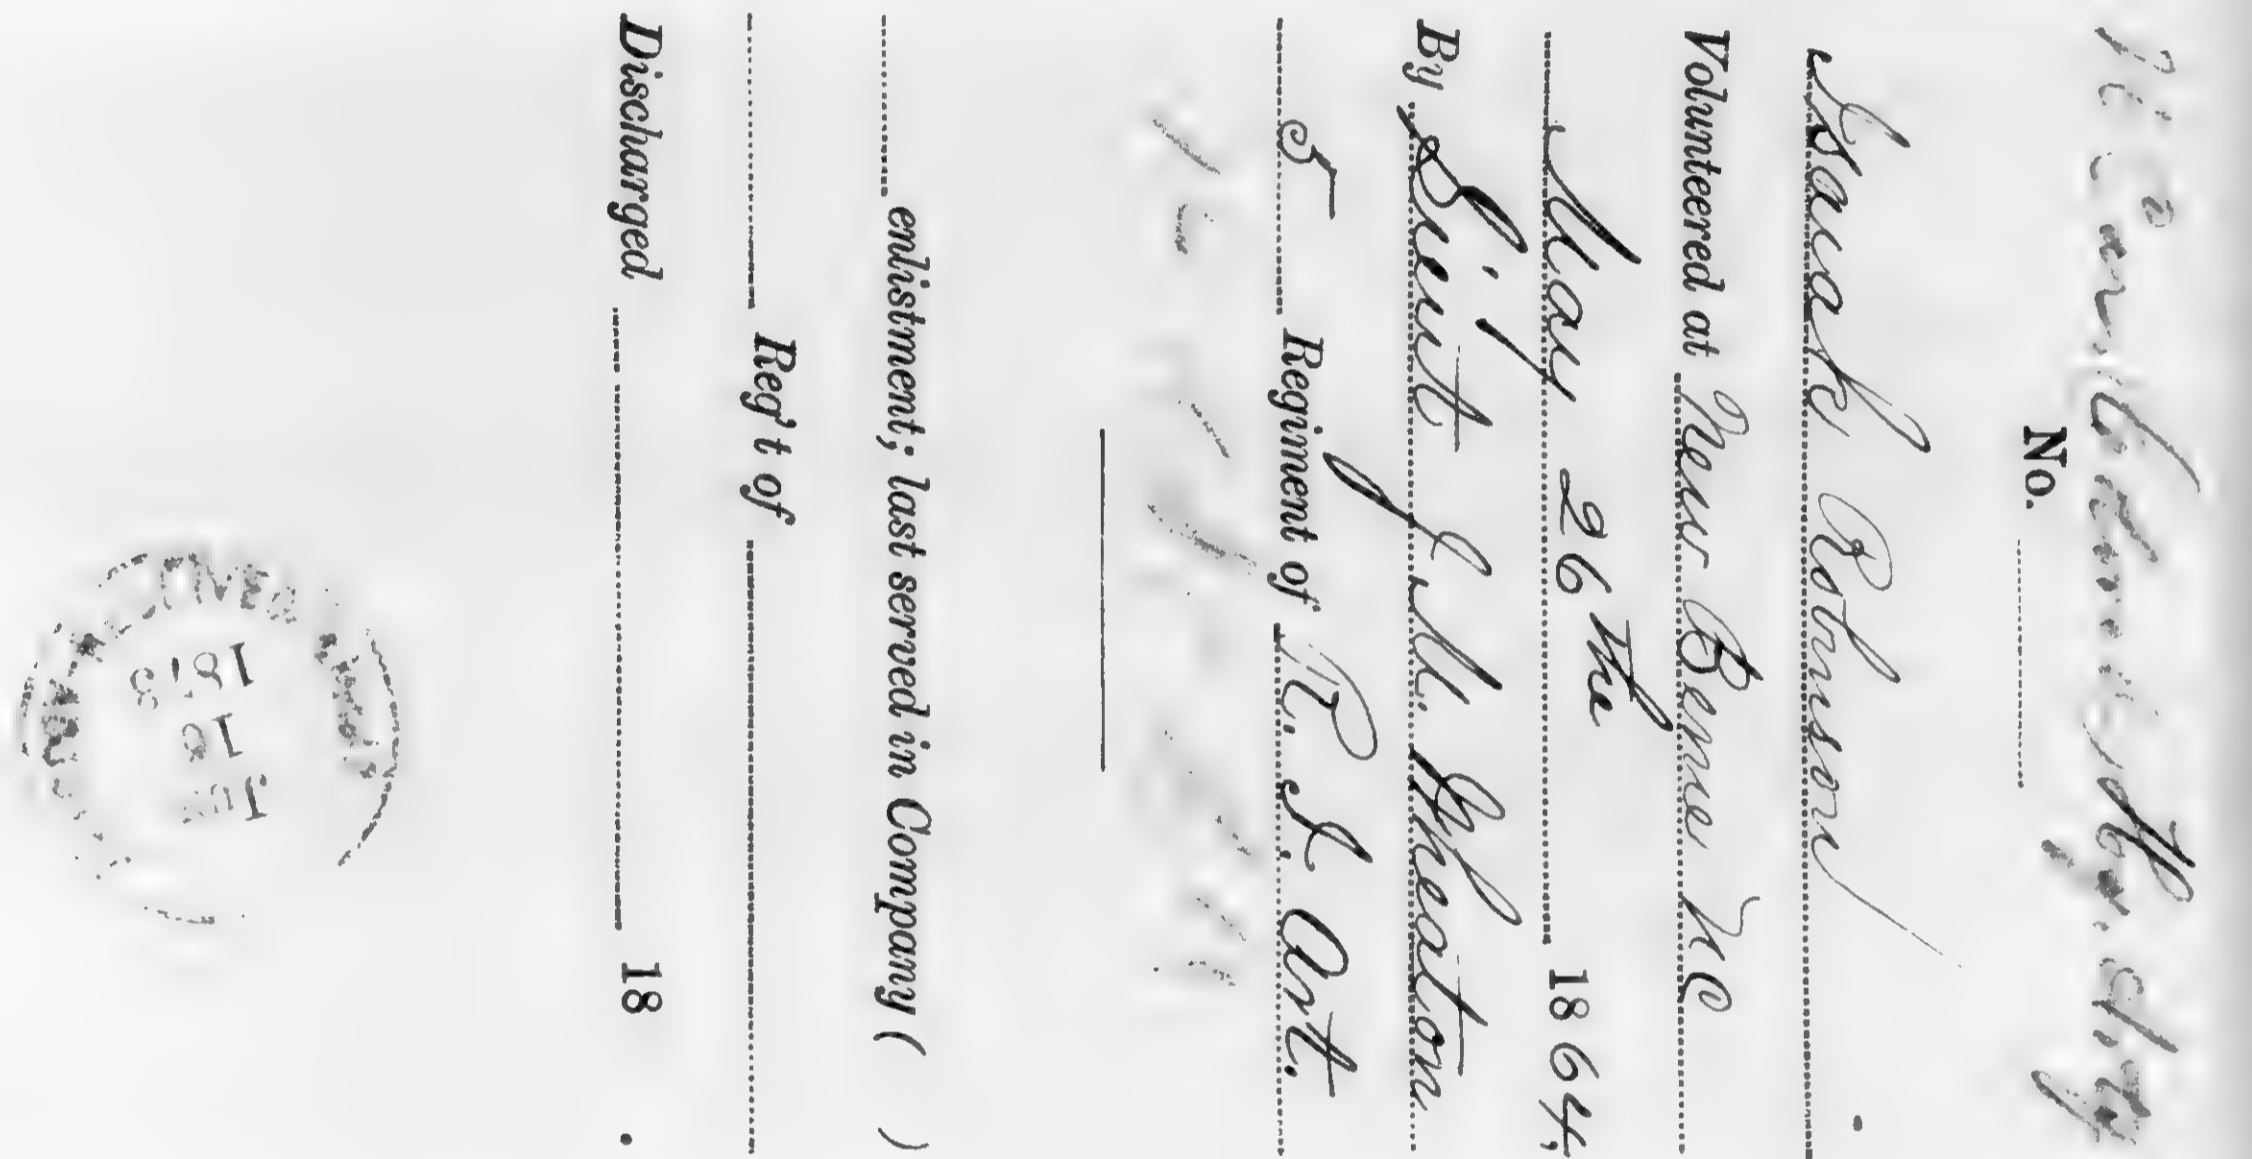 No.
Isaiah Robinson
Volunteered at New Berne NC
May 26th 1864,
By Lieut J. M. Wheaton
5 Regiment of R. I. Art.
enlistment; last served in Company ( )
Reg't of
Discharged 18 .